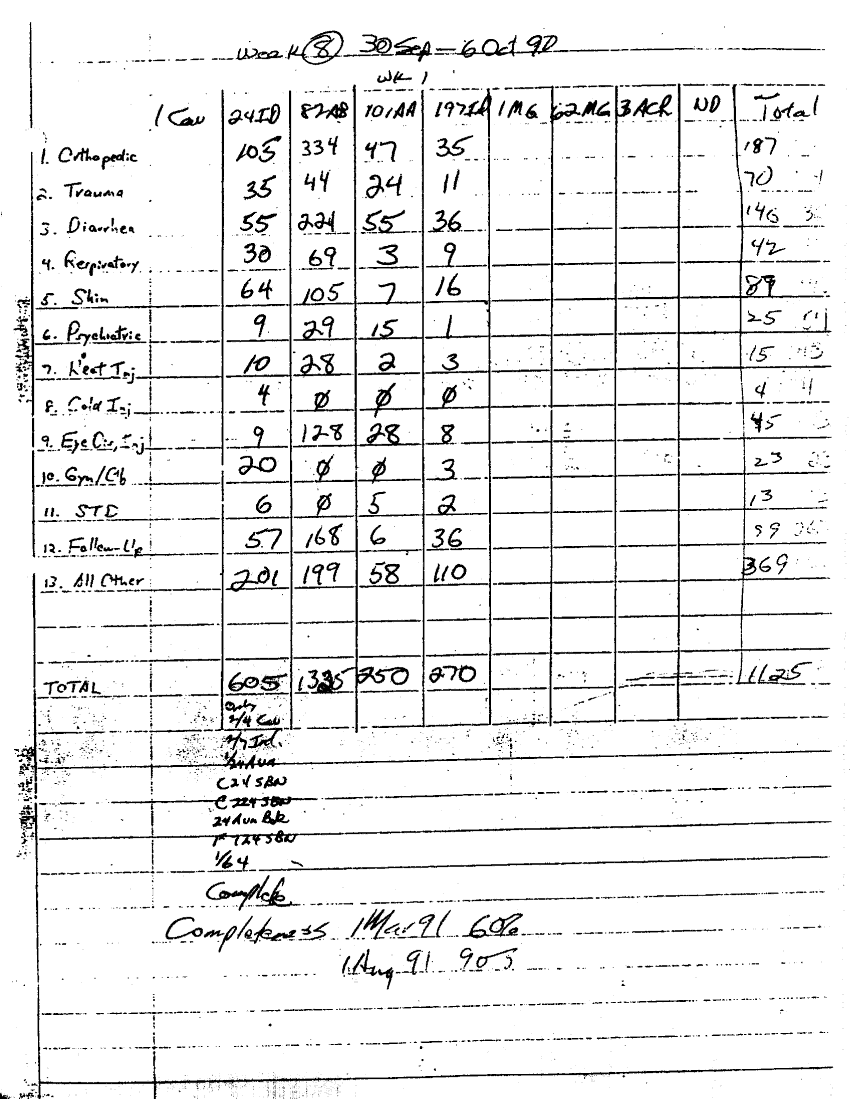 Week 8 30 Sep – 6 Oct 90
WK 1
1 Cav 24ID 82AB 101AA 197ID 1MG 62MG 3ACR ND Total
1. Orthopedic 105 334 47 35 187
2. Trauma 35 44 24 11 70
3. Diarrhea 55 221 55 36 146
4. Respiratory 30 69 3 9 42
5. Skin 64 105 7 16 87
6. Psychiatric 9 29 15 1 25
7. Heat Inj 10 28 2 3 15
8. Cold Inj 4 Ø Ø Ø 4 4
9. Eye Dis, Inj 9 128 28 8 45
10. Gyn/Ob 20 Ø Ø 3 23
11. STD 6 Ø 5 2 13
12. Follow-Up 57 168 6 36 99
13. All Other 201 199 58 110 369
TOTAL 605 1325 250 270 1125
Only
2/4 Cav
2/7 Inf.
1/24 Avn
C 24 SBN
C 224 SBN
24 Avn Bde
F 724 SBN
1/64
Complete
Completeness 1Mar91 60%
1Aug 91 90%